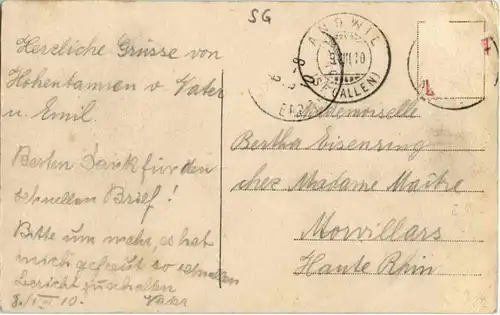 SG
Herzliche Grüsse von
Hohentannen v Vater
u. Emil.
Besten Dank für den
schnellen Brief!
Bitte um mehr, es hat
mich gefreut so schnellen
Bericht zu erhalten
8./VIII 10. Vater
ANDWIL
(ST. GALLEN)
Mademoiselle
Bertha Eisenring
chez Madame Maître
Morvillars
Haute Rhin